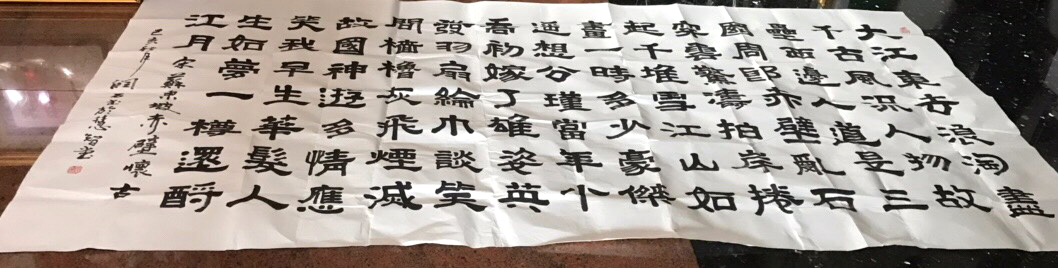 大江東去浪淘盡
千古風流人物故
壘西邊人道是三
國周郎赤壁亂石
突雲驚濤拍岸捲
起千堆雪江山如
畫一時多少豪傑
遙想公瑾當年小
喬初嫁了雄姿英
發羽扇綸巾談笑
間檣櫓灰飛煙滅
故國神遊多情應
笑我早生華髮人
生如夢一樽還酹
江月 宋蘇東坡赤壁懷古
己亥